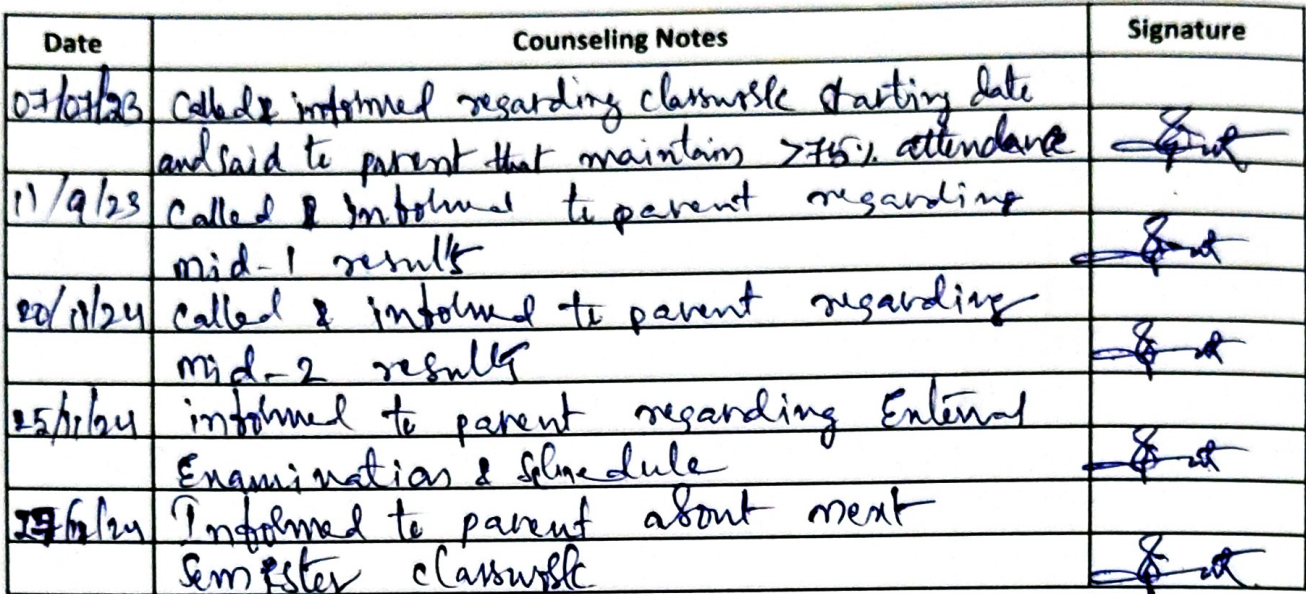 Date Counseling Notes Signature
07/07/23 Called & informed regarding classwork starting date
and said to parent that maintain >75% attendance
11/9/23 Called & informed to parent regarding
mid-1 results
20/11/24 Called & informed to parent regarding
mid-2 results
25/11/24 informed to parent regarding External
Examination & Schedule
/12/24 Informed to parent about next
Semester classwork